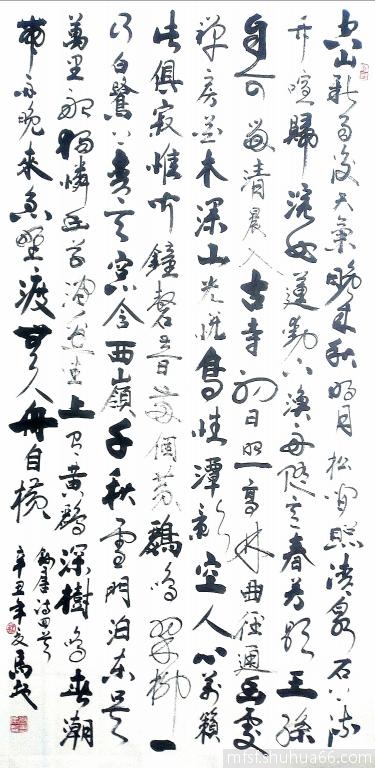 空山新雨後天氣晚來秋明月松間照清泉石上流
竹喧歸浣女蓮動下漁舟隨意春芳歇王孫
自可留清晨入古寺初日照高林曲徑通幽處
禪房花木深山光悅鳥性潭影空人心萬籟
此俱寂惟聞鐘磬音兩個黃鸝鳴翠柳一
行白鷺上青天窗含西嶺千秋雪門泊東吳
萬里船獨憐幽草澗邊生上有黃鸝深樹鳴春潮
帶雨晚來急野渡無人舟自橫
錄唐詩四首
辛丑年夏馬
mfsf.shuhua66.com